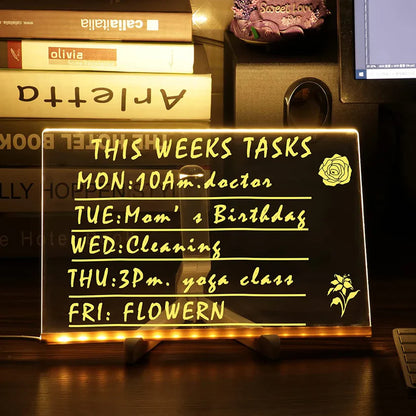 callaitalia
olivia
Arletta
THE HOTEL BOOK
THIS WEEKS TASKS
MON:10Am.doctor
TUE:Mom's Birthday
WED:Cleaning
THU:3Pm. yoga class
FRI: FLOWERN
Sweet Love